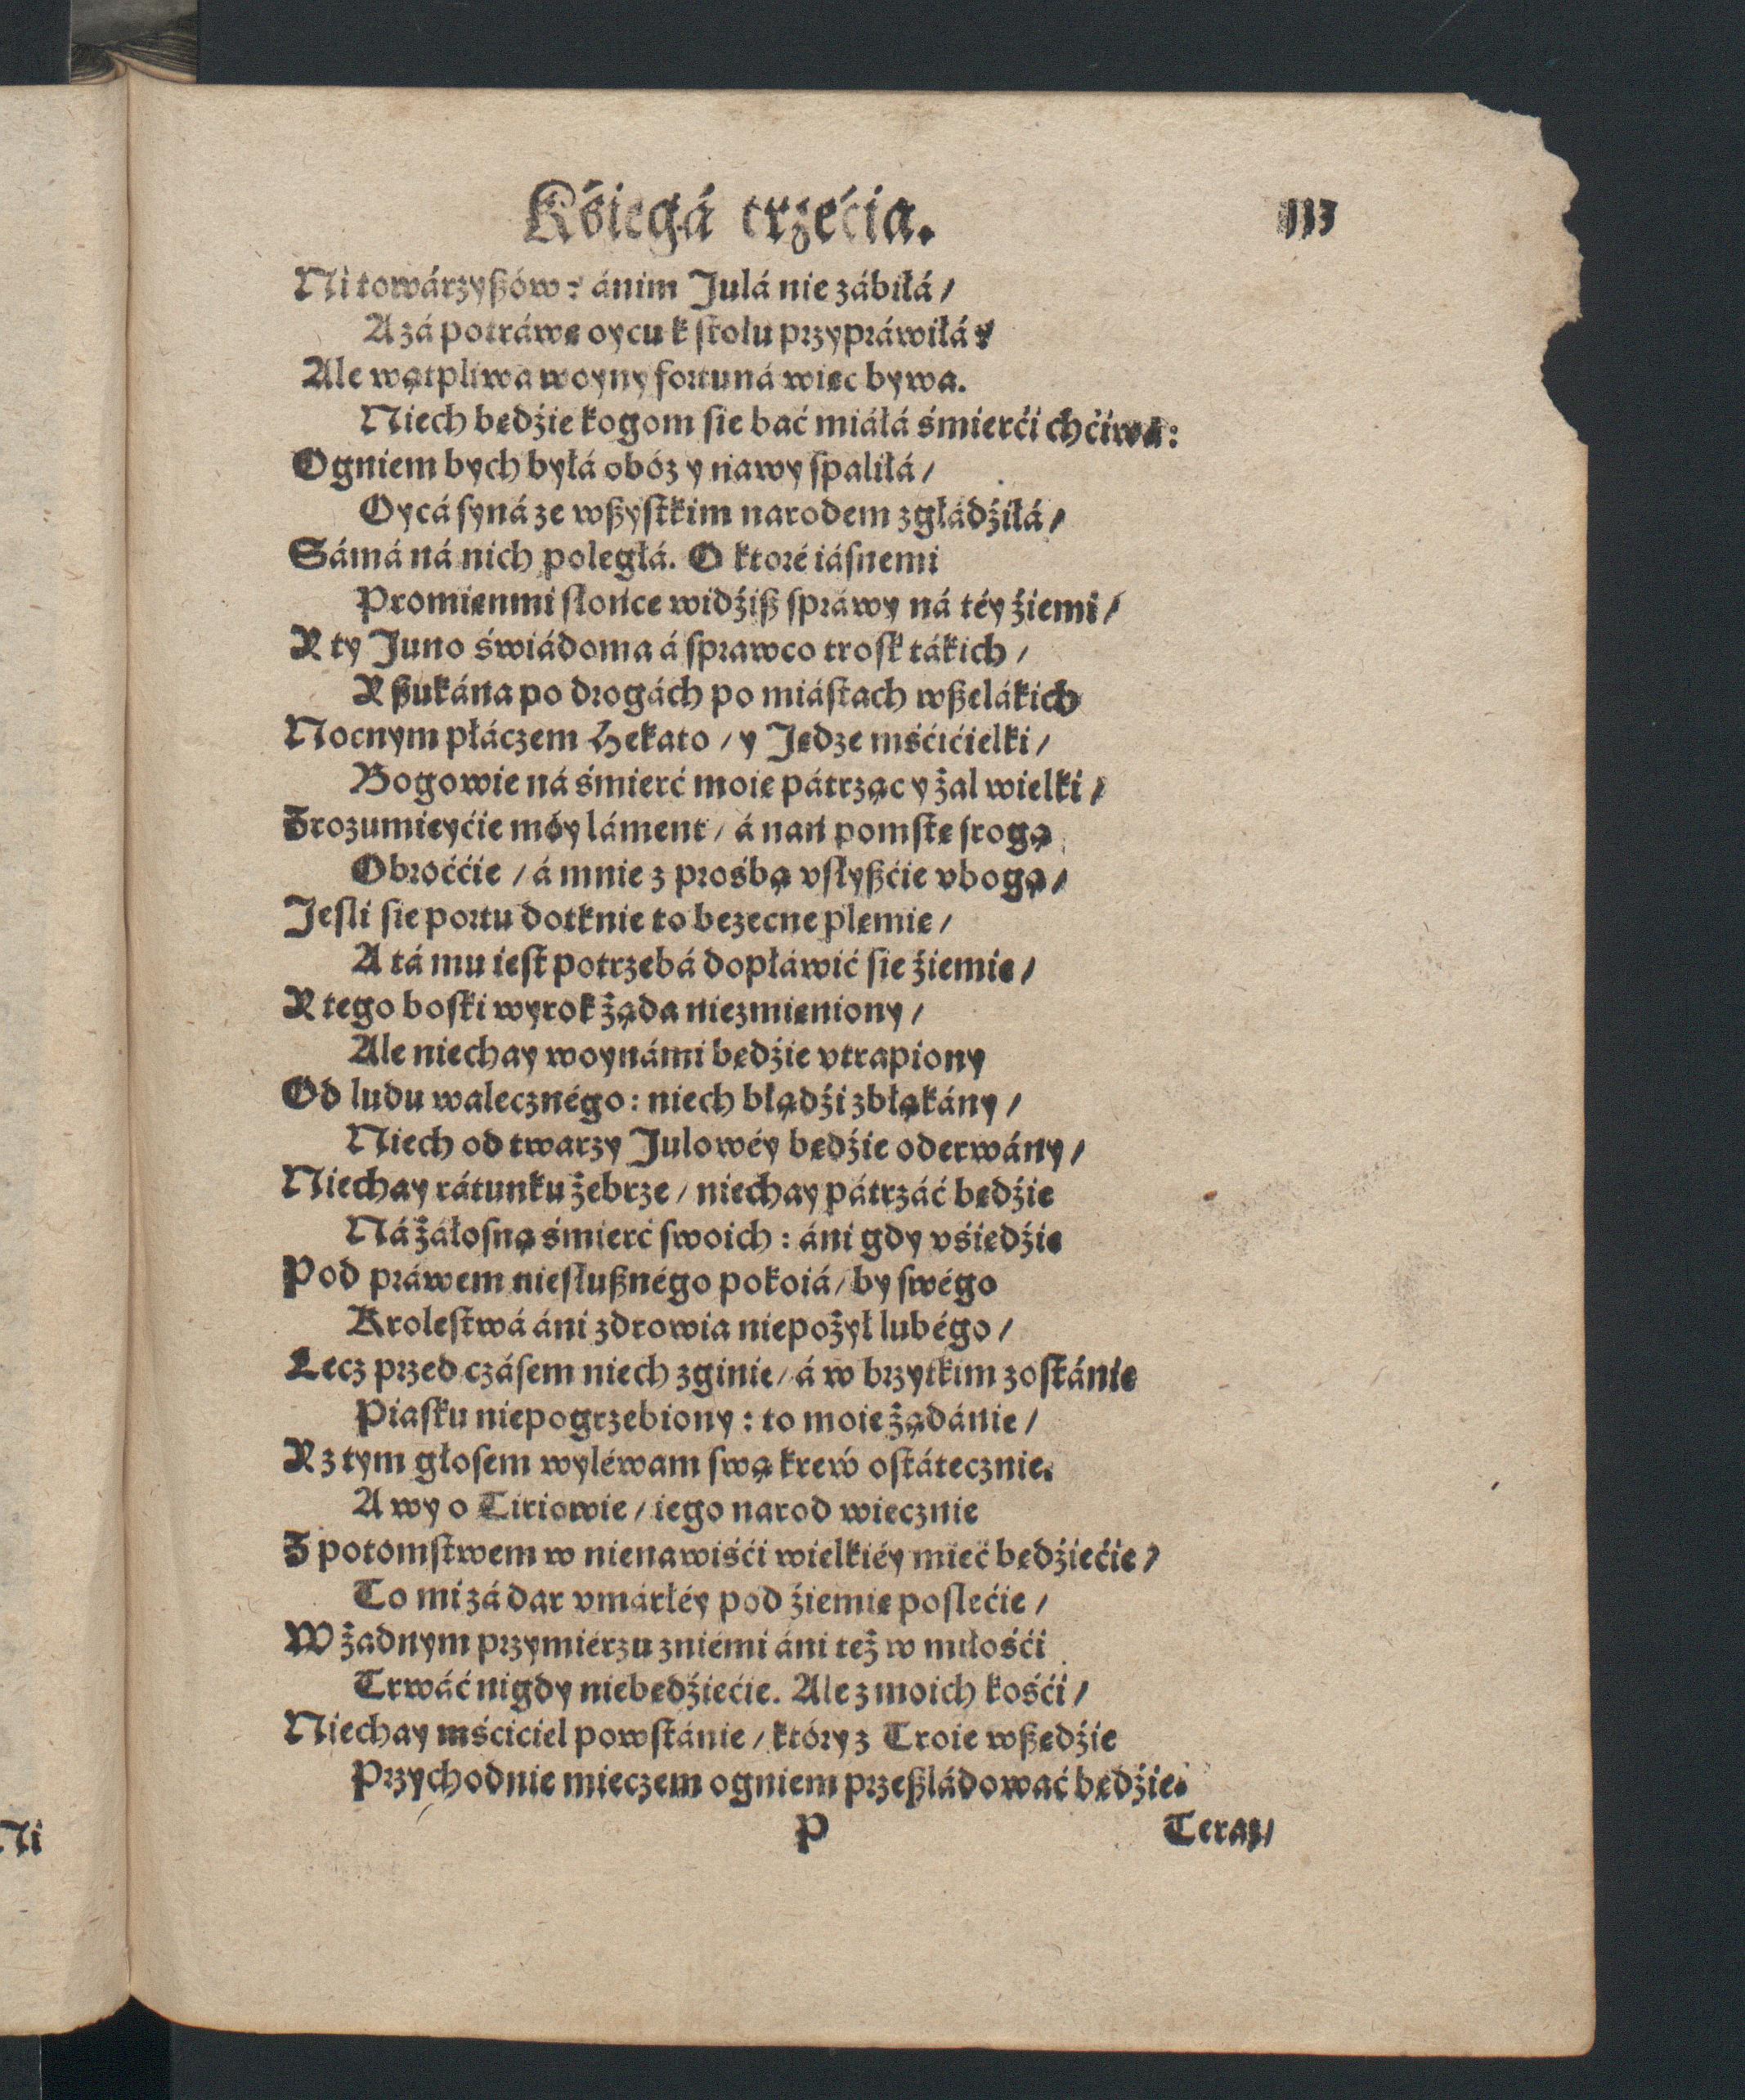 Kśięgá trzećia.
113
Ni towárzyßów? ánim Julá nie zábiłá /
A zá potráwę oycu k stołu przypráwiłá?
Ale wątpliwa woyny fortuná więc bywa.
Niech będźie kogom się bać miáłá śmierći chćiwa:
Ogniem bych byłá obóz y nawy spaliłá /
Oycá syná ze wßystkim narodem zgłádźiłá /
Sámá ná nich poległá. O które iásnemi
Promieńmi słońce widźiß spráwy ná téy źiemi /
Y ty Juno świádoma á sprawco trosk tákich /
Y ßukána po drogách po miástach wßelákich
Nocnym płáczem Hekato / y Jędze mśćićielki /
Bogowie ná śmierć moię pátrząc y żal wielki /
Zrozumieyćie móy láment / á nań pomstę srogą
Obroććie / á mnie z prośbą vsłyßćie vbogą /
Jesli się portu dotknie to bezecne plemię /
A tá mu iest potrzebá dopłáwić się źiemie /
Y tego boski wyrok żąda niezmieniony /
Ale niechay woynámi będźie vtrapiony
Od ludu walecznégo: niech błądźi zbłąkány /
Niech od twarzy Julowéy będźie oderwány /
Niechay rátunku żebrze / niechay pátrzáć będźie
Ná żáłosną śmierć swoich: áni gdy vśiędźie
Pod práwem niesłußnégo pokoiá / by swégo
Krolestwá áni zdrowia niepożył lubégo /
Lecz przed czásem niech zginie / á w brzytkim zostánie
Piasku niepogrzebiony: to moie żądánie /
Y z tym głosem wyléwam swą krew ostátecznie.
A wy o Tiriowie / iego narod wiecznie
Z potomstwem w nienawiśći wielkiéy mieć będźiećie /
To mi zá dar vmárłéy pod źiemię poslećie /
W żadnym przymiérzu zniémi áni też w miłośći
Trwáć nigdy niebędźiećie. Ale z moich kośći /
Niechay mściciel powstánie / który z Troie wßędźie
Przychodnie mieczem ogniem przeßládować będźie.
P
Teraz /
Ni